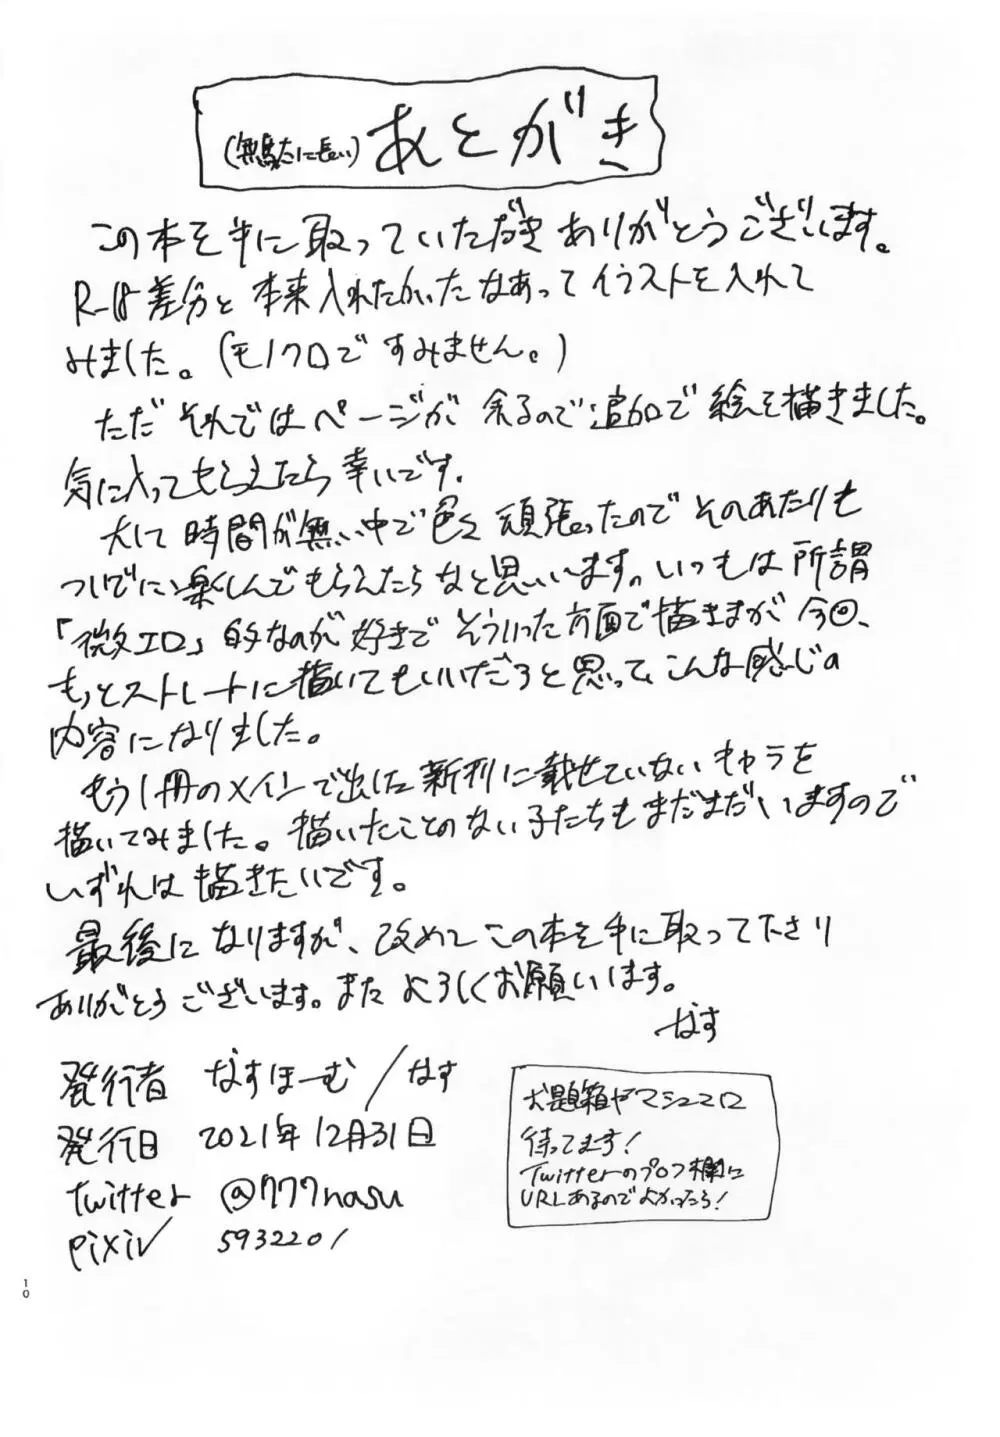 (無駄に長い)あとがき
この本を手に取っていただきありがとうございます。
R-18差分と本来入れたかったなあってイラストを入れて
みました。(モノクロですみません。)
ただそれではページが余るので追加で絵を描きました。
気に入ってもらえたら幸いです。
大して時間が無い中で色々頑張ったのでそのあたりも
ついでに楽しんでもらえたらなと思います。いつもは所謂
「微エロ」的なのが好きでそういった方面で描きまが今回、
もっとストレートに描いてもいいだろと思って、こんな感じの
内容になりました。
もう1冊のメインで出した新刊に載せていないキャラを
描いてみました。描いたことのない子たちもまだまだいますので
いずれは描きたいです。
最後になりますが、改めてこの本を手に取って下さり
ありがとうございます。またよろしくお願いします。
なす
発行者 なすほーむ/なす
発行日 2021年12月31日
twitter @777nasu
pixiv 5932201
お題箱やマシュマロ
待ってます!
Twitterのプロフ欄に
URLあるのでよかったら!
10